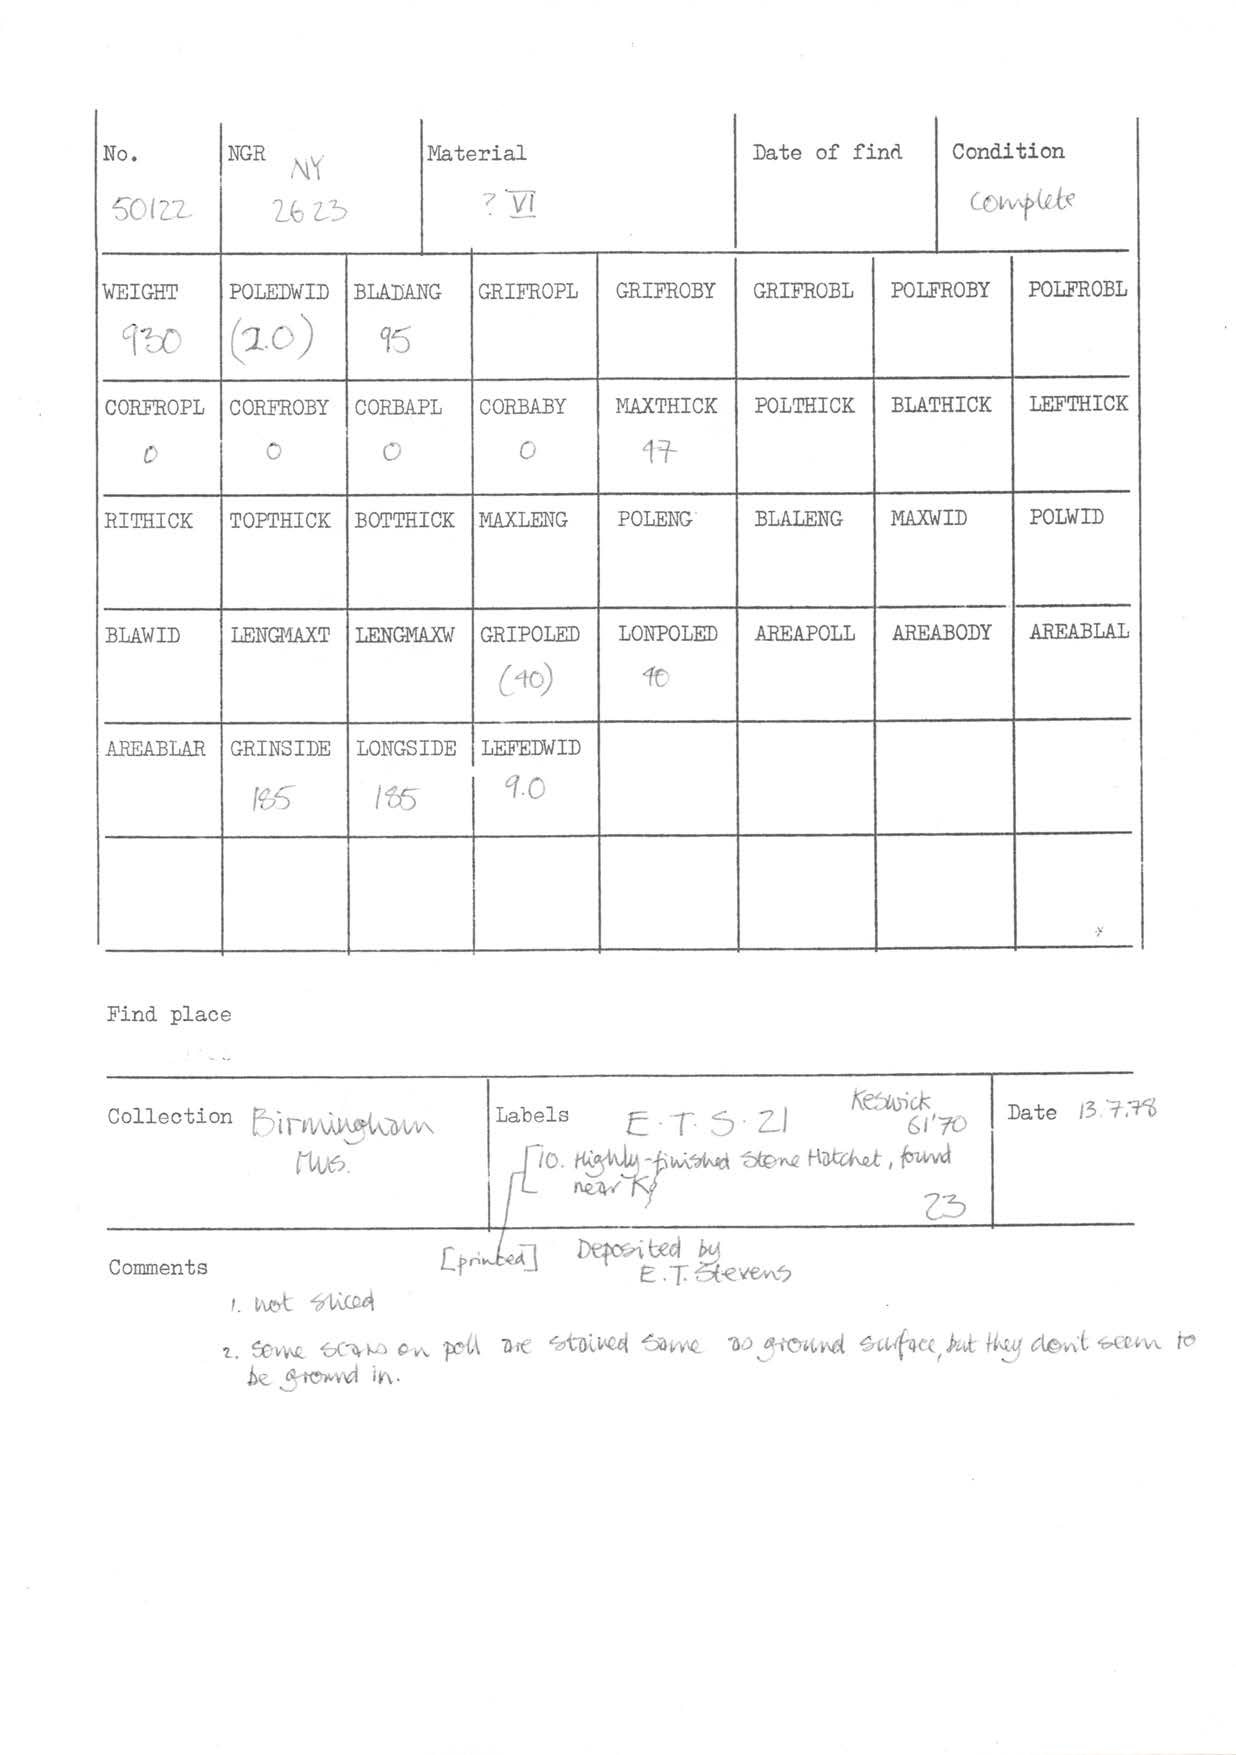 No. NGR Material Date of find Condition
NY
50122 2623 ? VI complete
WEIGHT POLEDWID BLADANG GRIFROPL GRIFROBY GRIFROBL POLFROBY POLFROBL
930 (2.0) 95
CORFROPL CORFROBY CORBAPL CORBABY MAXTHICK POLTHICK BLATHICK LEFTHICK
0 0 0 0 47
RITHICK TOPTHICK BOTTHICK MAXLENG POLENG BLALENG MAXWID POLWID
BLAWID LENGMAXT LENGMAXW GRIPOLED LONPOLED AREAPOLL AREABODY AREABLAL
(40) 40
AREABLAR GRINSIDE LONGSIDE LEFEDWID
185 185 9.0
Find place
Collection Birmingham
Mus.
Labels E.T.S.21 Keswick
61'70
10. Highly-finished Stone Hatchet, found
near K
23
Date 13.7.78
[printed] Deposited by
E.T. Stevens
Comments
1. not sliced
2. some scars on poll are stained same as ground surface, but they don't seem to
be ground in.